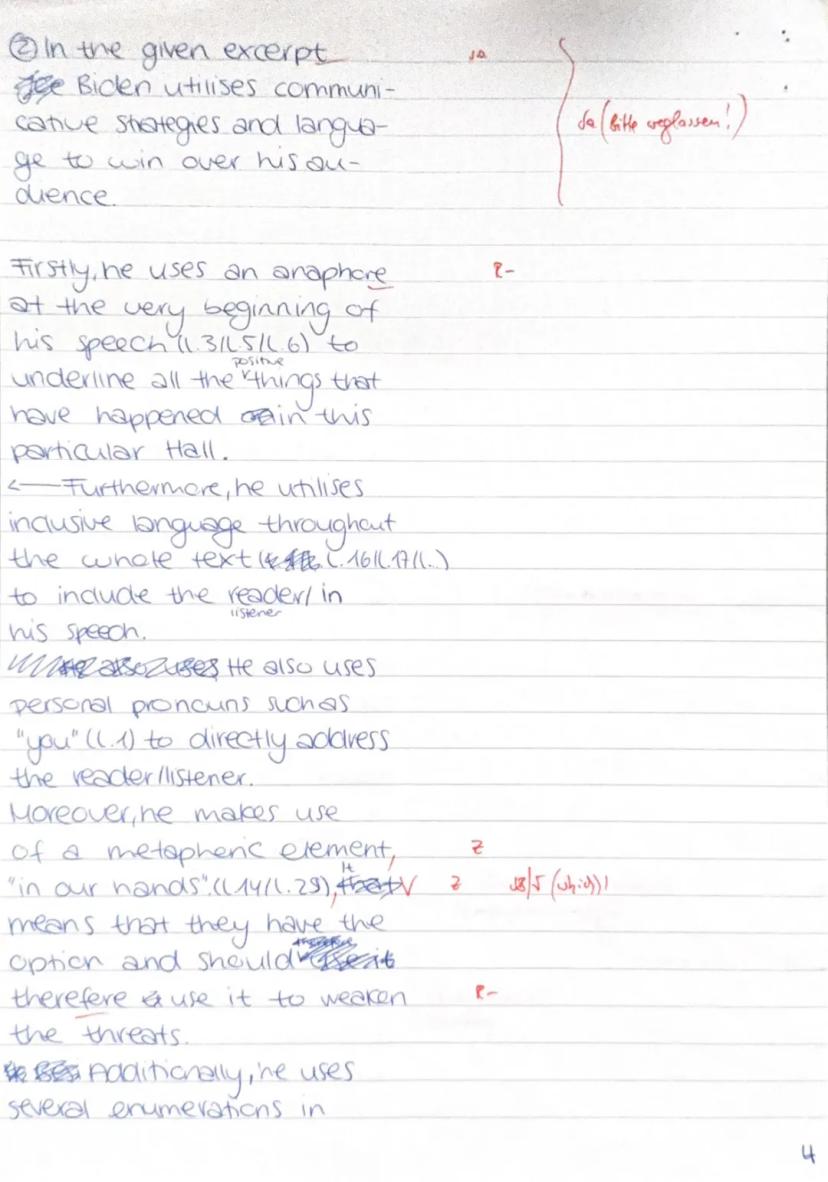 ② In the given excerpt
Biden utilises communi-
cative strategies and langua-
ge to win over his au-
dience.
Sa (bitte weglassen!)
Firstly, he uses an anaphore R-
at the very beginning of
his speech (l.3/l.5/l.6) to
positive
underline all the things that
have happened in this
particular Hall.
<— Furthermore, he utilises
inclusive language throughout
the whole text (l.16/l.17/l..)
to include the reader/ in
listener
his speech.
He also uses
personal pronouns such as
"you" (l.1) to directly address
the reader/listener.
Moreover, he makes use
of a metapheric element, Z
It
"in our hands".(l.14/l.29), Z (which)
means that they have the
option and should
therefere use it to weaken R-
the threats.
Additionally, he uses
several enumerations in
4